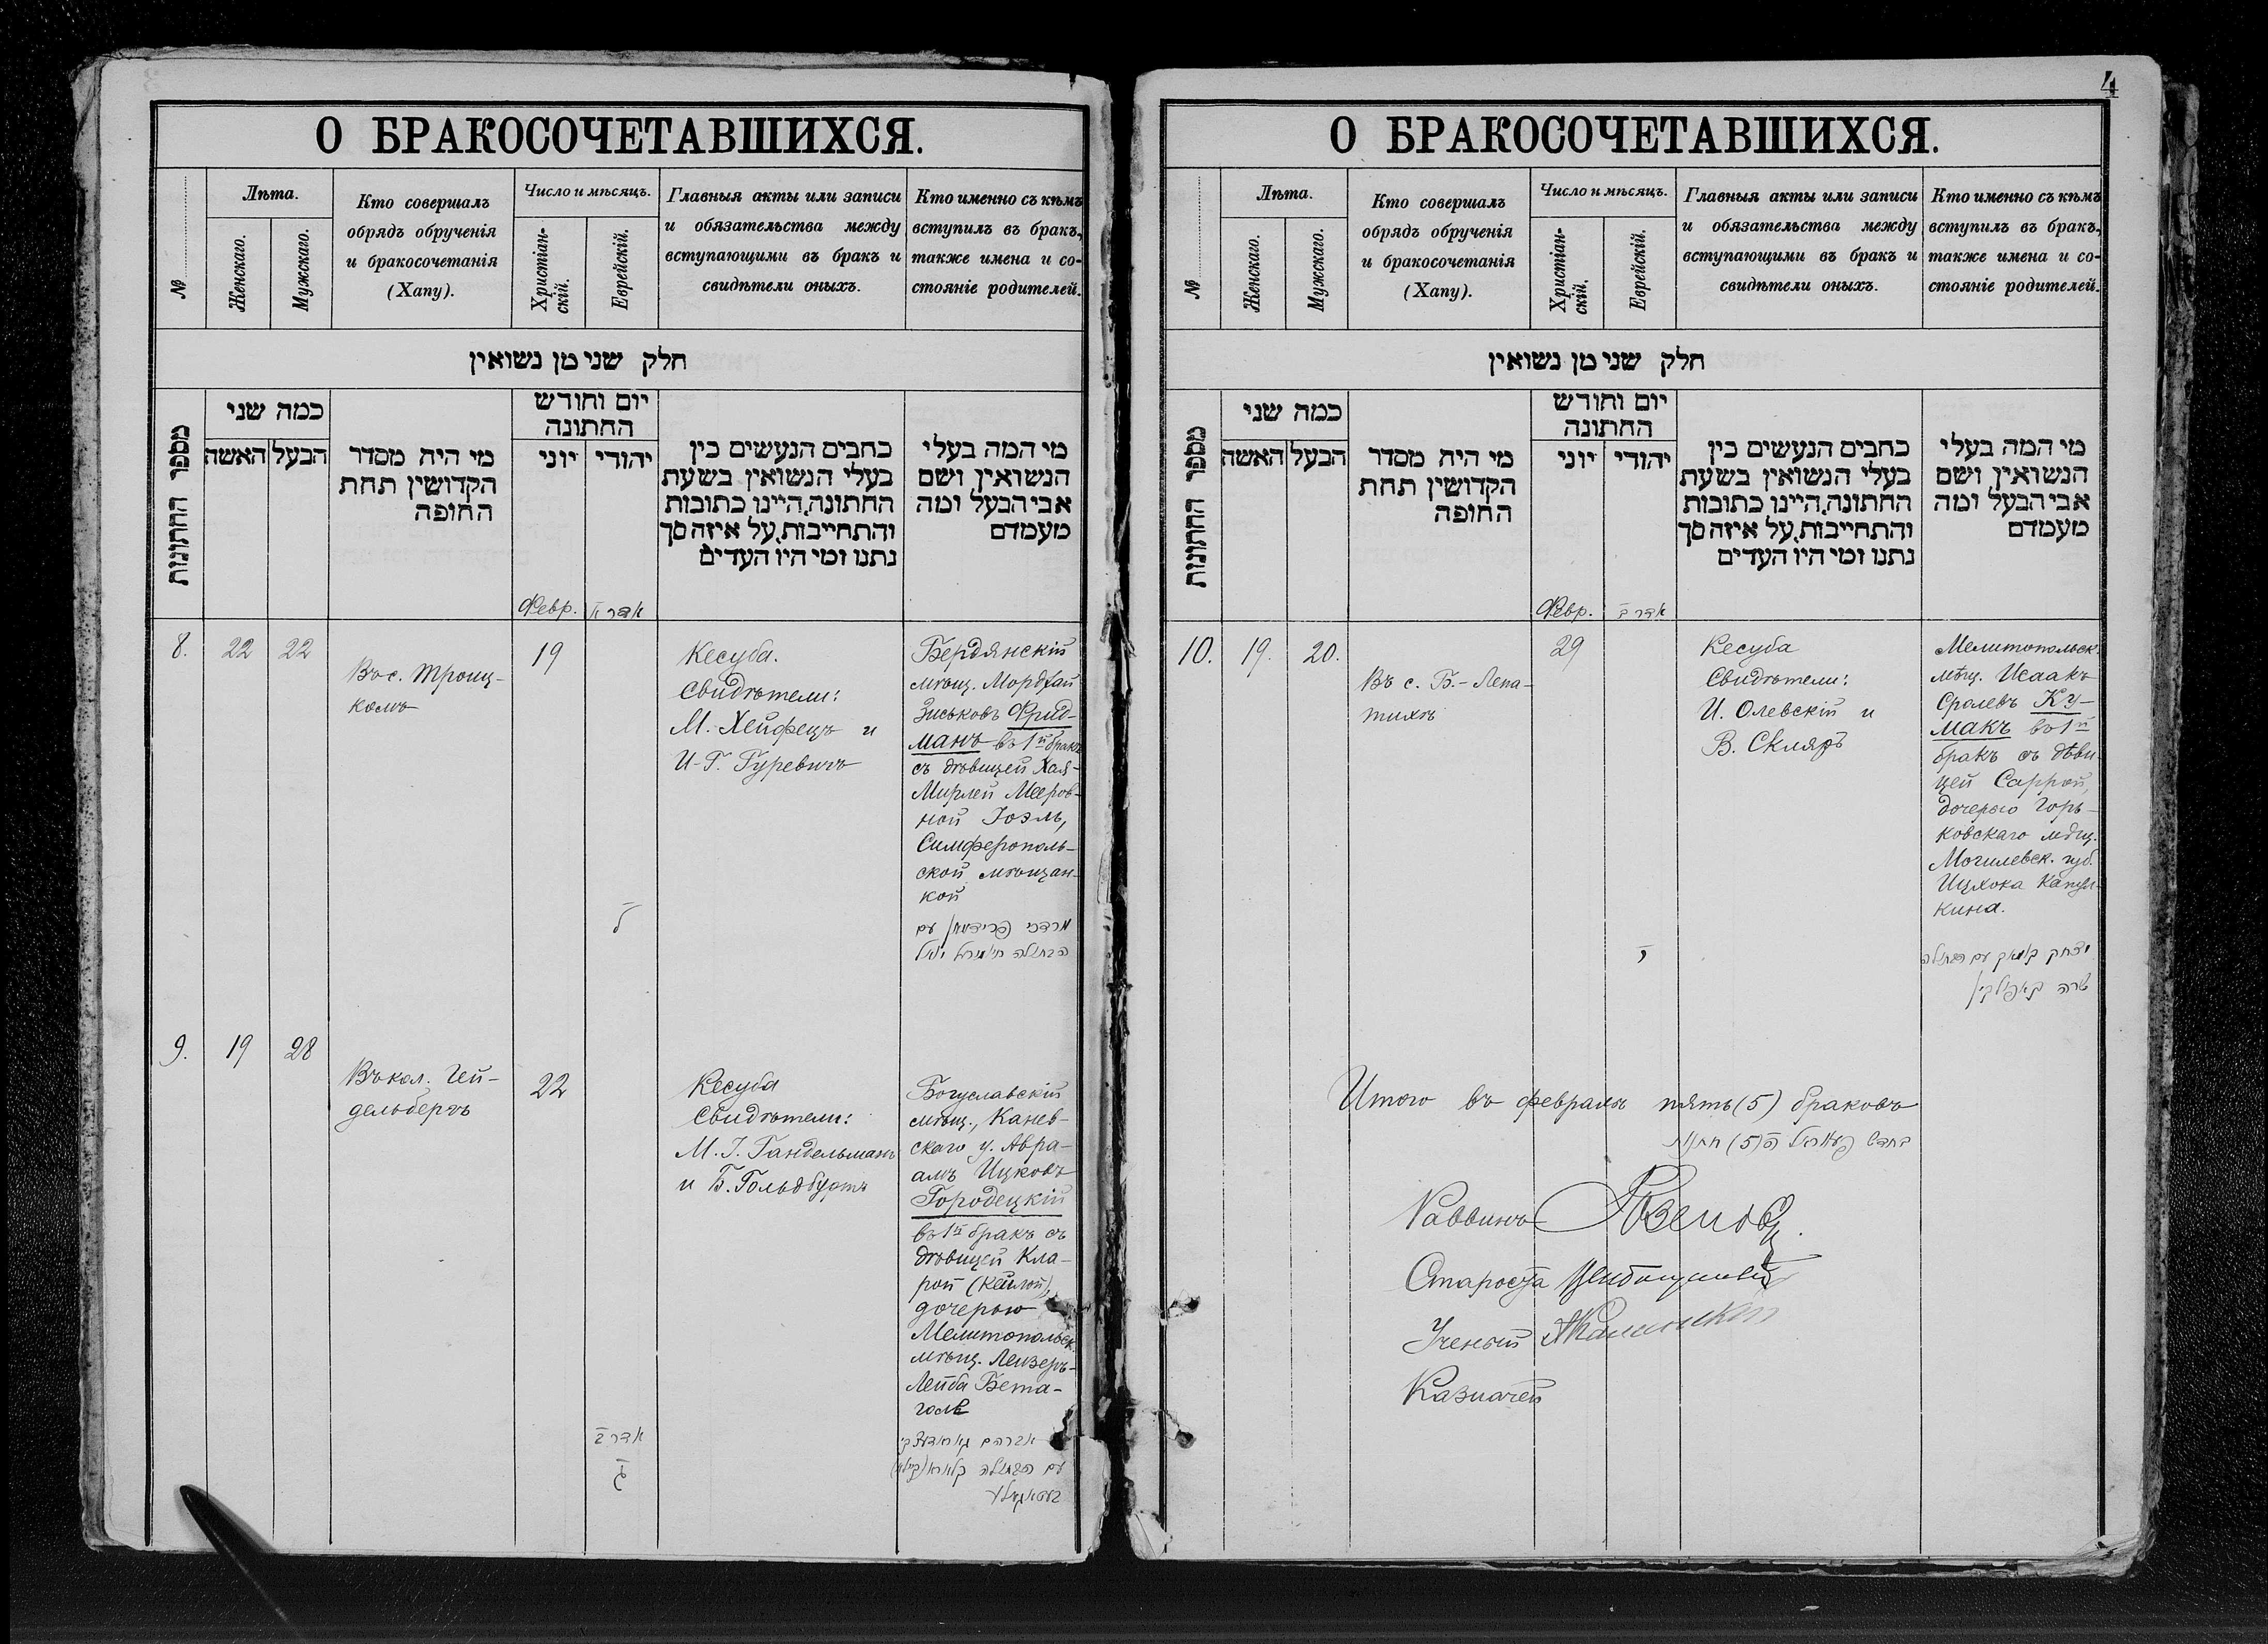 О БРАКОСОЧЕТАВШИХСЯ.
№
Лѣта.
Женскаго.
Мужскаго.
Кто совершалъ
обрядъ обрученія
и бракосочетанія
(Хапу).
Число и мѣсяцъ.
Христіан-
скій.
Еврейскій.
Главныя акты или записи
и обязательства между
вступающими въ бракъ и
свидѣтели оныхъ.
Кто именно съ кѣмъ
вступилъ въ бракъ,
также имена и со-
стояніе родителей.
חלק שני מן נשואין
מספר החתונות
כמה שני
האשה
הבעל
מי היה מסדר
הקדושין תחת
החופה
יום וחודש
החתונה
יוני
יהודי
כתבים הנעשים בין
בעלי הנשואין בשעת
החתונה, היינו כתובות
והתחייבות, על איזה סך
נתנו ומי היו העדים
מי המה בעלי
הנשואין ושם
אבי הבעל ומה
מעמדם
Февр.
אדר א
8.
22
22
Въ с. Троиц-
комъ
19
ל
Кесуба.
Свидѣтели:
М. Хейфецъ и
И-Г. Гуревичъ
Бердянскій
мѣщ. Мордхай
Зиськовъ Фрид-
манъ въ 1й бракъ
съ дѣвицей Хая-
Мирлей Мееров-
ной Іоэль,
Симферополь-
ской мѣщан-
кой
מרדכי פרידמאן עם
הבתולה חי' מירל יואל
9.
19
28
Въ кол. Гей-
дельбергъ
22
אדר ב
ג
Кесуба
Свидѣтели:
М. І. Гандельманъ
и Б. Гольдбуртъ
Богуславскій
мѣщ., Канев-
скаго у. Авра-
амъ Ицковъ
Городецкій
въ 1й бракъ съ
дѣвицей Кла-
рой (Кейлой),
дочерью
Мелитопольск.
мѣщ. Лейзеръ-
Лейба Бета-
голь
אברהם גאראדעצקי
עם הבתולה קלארא (קיילא)
О БРАКОСОЧЕТАВШИХСЯ.
4
№
Лѣта.
Женскаго.
Мужскаго.
Кто совершалъ
обрядъ обрученія
и бракосочетанія
(Хапу).
Число и мѣсяцъ.
Христіан-
скій.
Еврейскій.
Главныя акты или записи
и обязательства между
вступающими въ бракъ и
свидѣтели оныхъ.
Кто именно съ кѣмъ
вступилъ въ бракъ,
также имена и со-
стояніе родителей.
חלק שני מן נשואין
מספר החתונות
כמה שני
האשה
הבעל
מי היה מסדר
הקדושין תחת
החופה
יום וחודש
החתונה
יוני
יהודי
כתבים הנעשים בין
בעלי הנשואין בשעת
החתונה, היינו כתובות
והתחייבות, על איזה סך
נתנו ומי היו העדים
מי המה בעלי
הנשואין ושם
אבי הבעל ומה
מעמדם
Февр.
אדר ב
10.
19.
20.
Въ с. Б.-Лепа-
тихѣ
29
י
Кесуба
Свидѣтели:
И. Олевскій и
В. Скляръ
Мелитопольск.
мѣщ. Исаакъ
Сролевъ Ку-
макъ въ 1й
бракъ съ дѣви-
цей Саррой,
дочерью Горь-
ковскаго мѣщ.
Могилевск. губ.
Ицхока Капул-
кина.
יצחק קומאק עם הבתולה
שרה קאפולקין
Итого въ февралѣ пять (5) браковъ
בחדש פעווראל ה (5) חתנות
Раввинъ
Староста
Ученый
Казначей